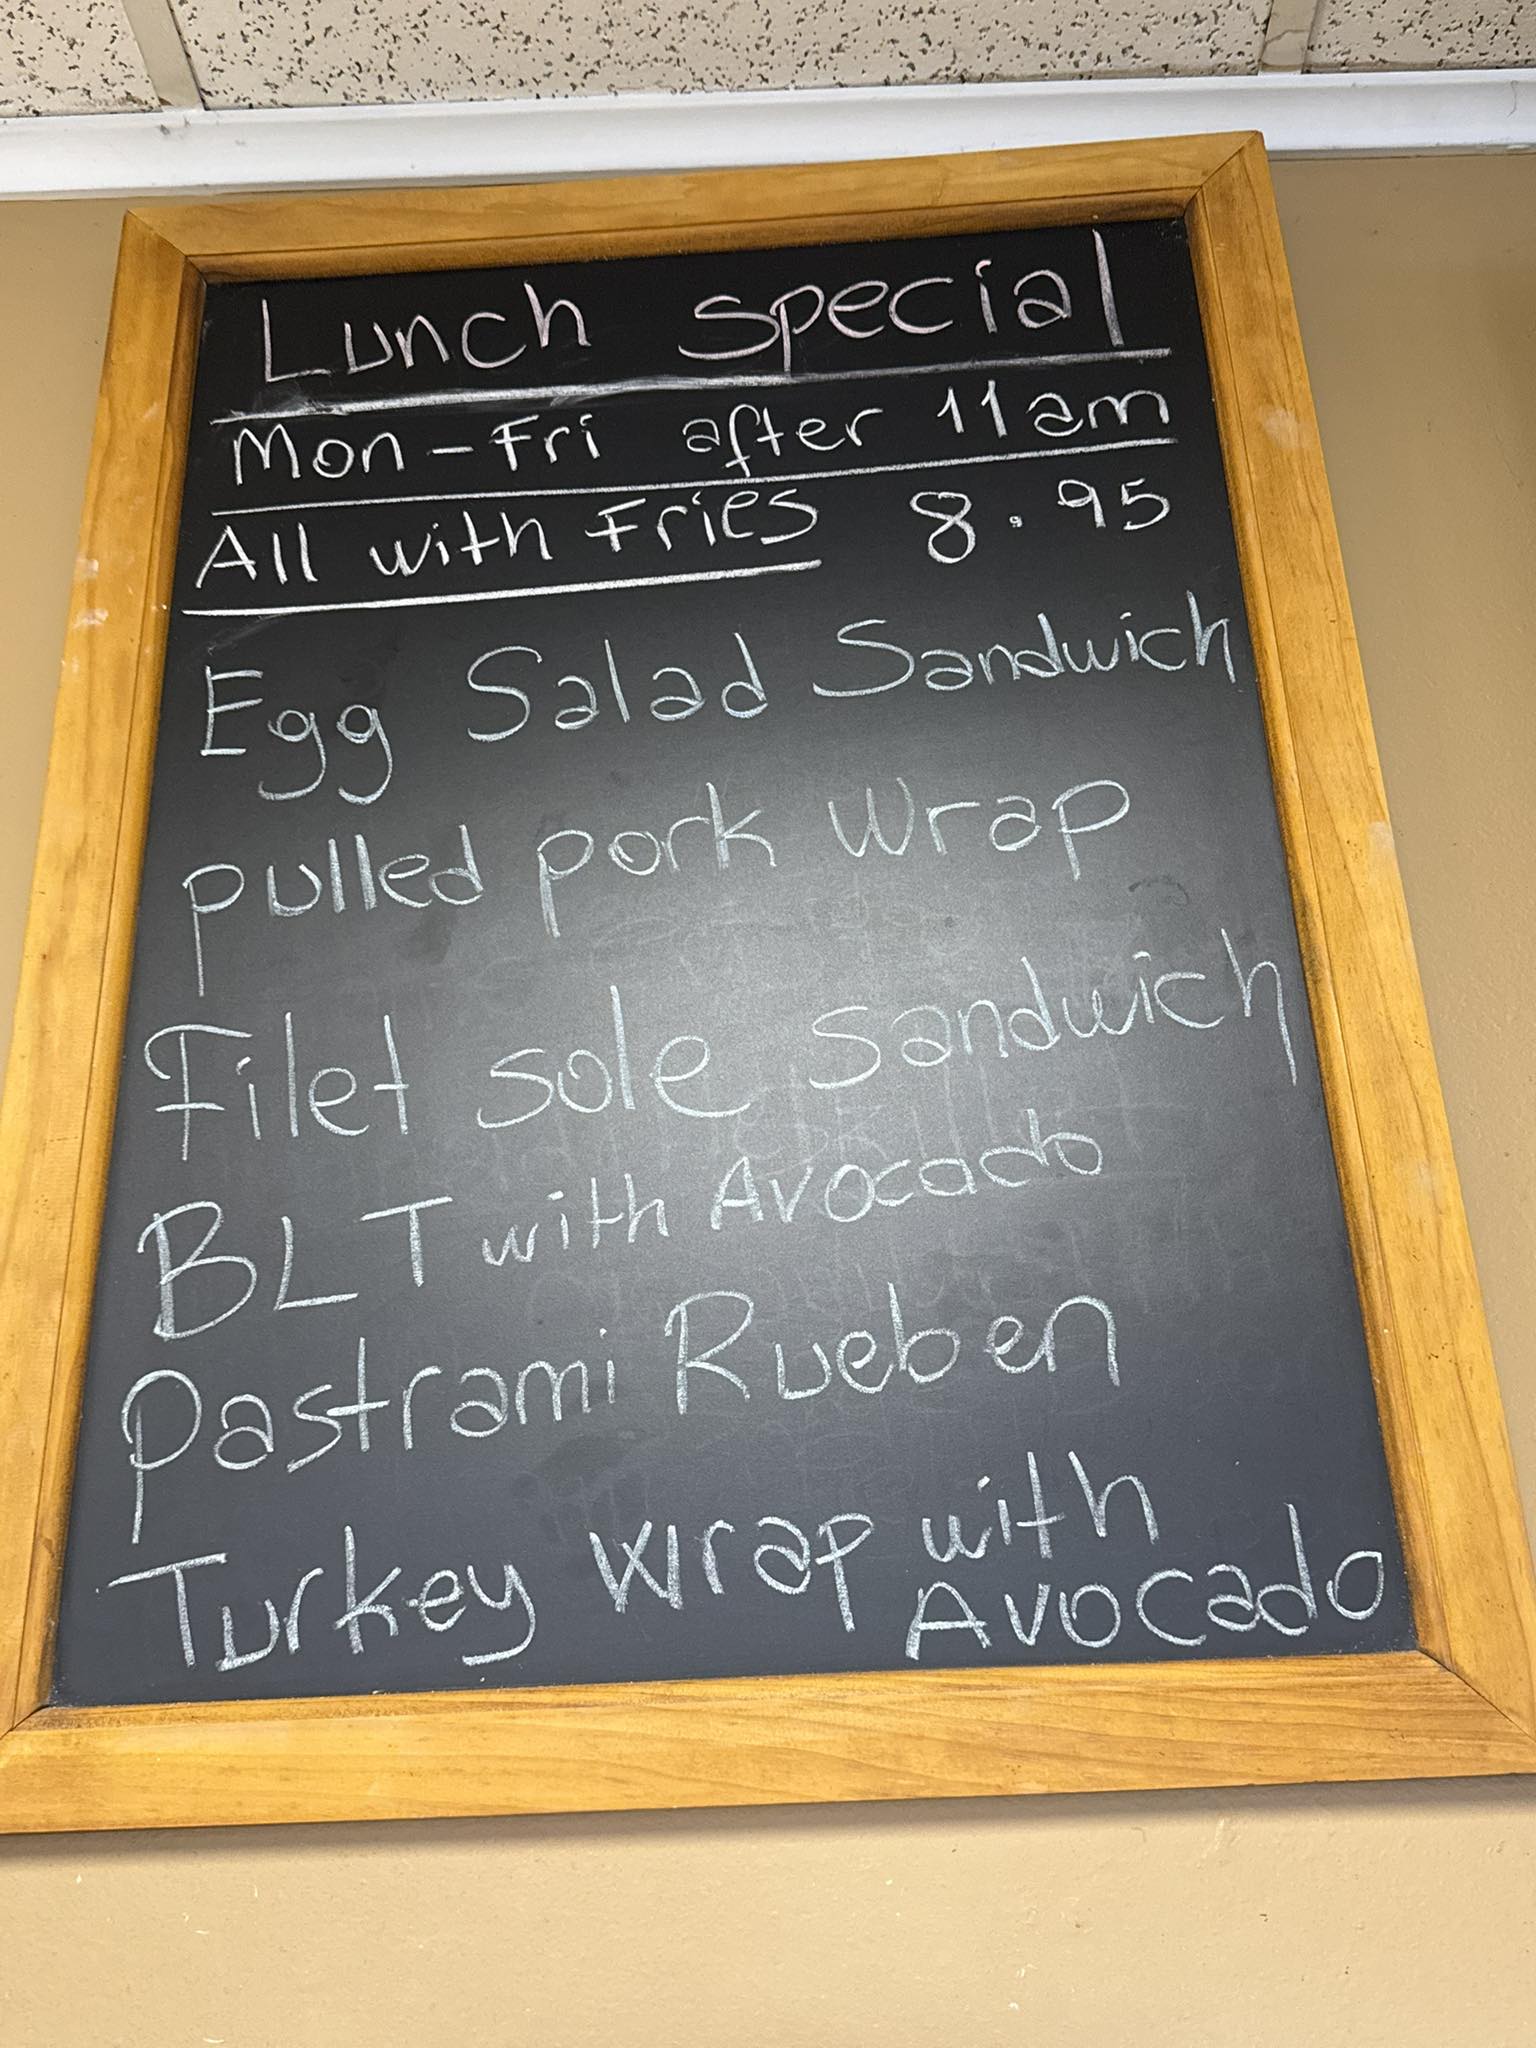 Lunch special
Mon-Fri after 11am
All with Fries 8.95
Egg Salad Sandwich
pulled pork wrap
Filet sole sandwich
BLT with Avocado
Pastrami Rueben
Turkey wrap with
Avocado